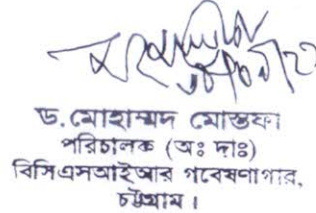 ড. মোহাম্মদ মোস্তফা
পরিচালক (অঃ দাঃ)
বিসিএসআইআর গবেষণাগার,
চট্টগ্রাম।